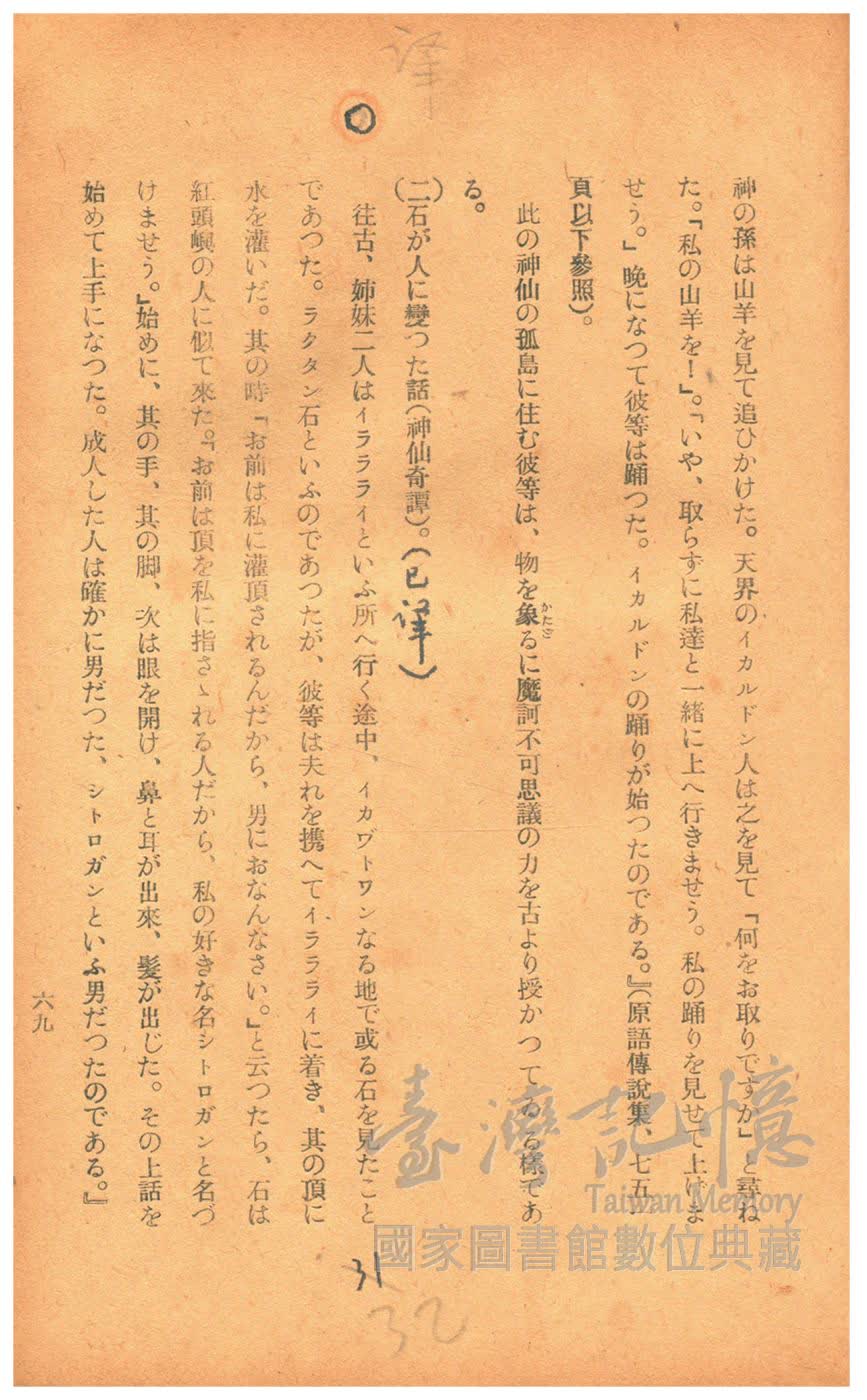 译
神の孫は山羊を見て追ひかけた。天界のイカルドン人は之を見て「何をお取りですか」と尋ね
た。「私の山羊を！」。「いや、取らずに私達と一緒に上へ行きませう。私の踊りを見せて上げま
せう。」晩になつて彼等は踊つた。イカルドンの踊りが始つたのである。』(原語傳說集、七五一
頁以下參照)。
此の神仙の孤島に住む彼等は、物を象るに魔訶不可思議の力を古より授かつてゐる樣であ
かたど
る。
(二)石が人に變つた話(神仙奇譚)。(已译)
往古、姉妹二人はイラライといふ所へ行く途中、イカヴトワンなる地で或る石を見たこと
であつた。ラクタン石といふのであつたが、彼等は夫れを携へてイラライに着き、其の頂に
水を灌いだ。其の時「お前は私に灌頂されるんだから、男におなんなさい。」と云つたら、石は
紅頭嶼の人に似て來た。「お前は頂を私に指さゝれる人だから、私の好きな名シトロガンと名づ
けませう。」始めに、其の手、其の脚、次は眼を開け、鼻と耳が出來、髮が出じた。その上話を
始めて上手になつた。成人した人は確かに男だつた、シトロガンといふ男だつたのである。』
六九
31
32
臺灣記憶
Taiwan Memory
國家圖書館數位典藏